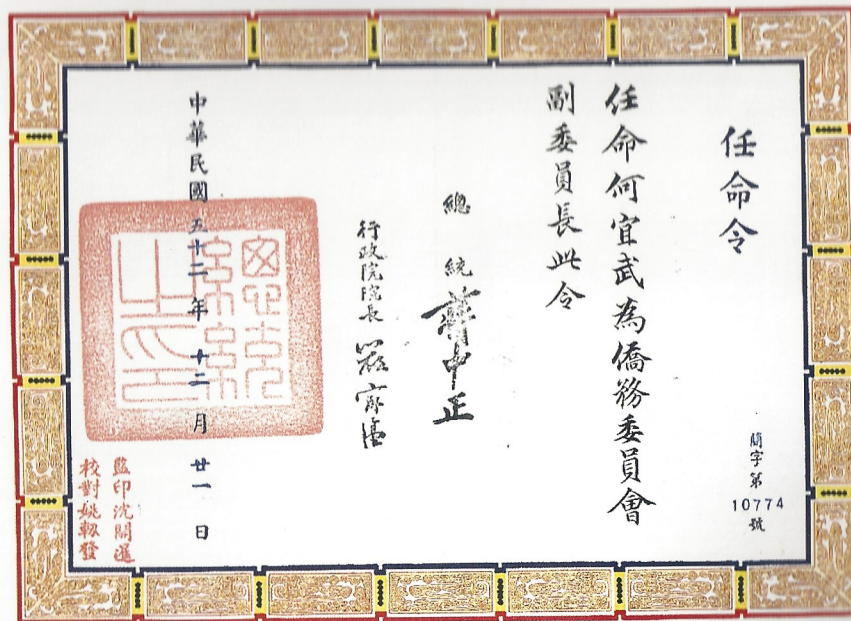 任命令
簡字第
10774
號
任命何宜武為僑務委員會
副委員長此令
總統 蔣中正
行政院院長 嚴家淦
中華民國五十二年十二月廿一日
總統之印
監印沈開運
校對姚軔發